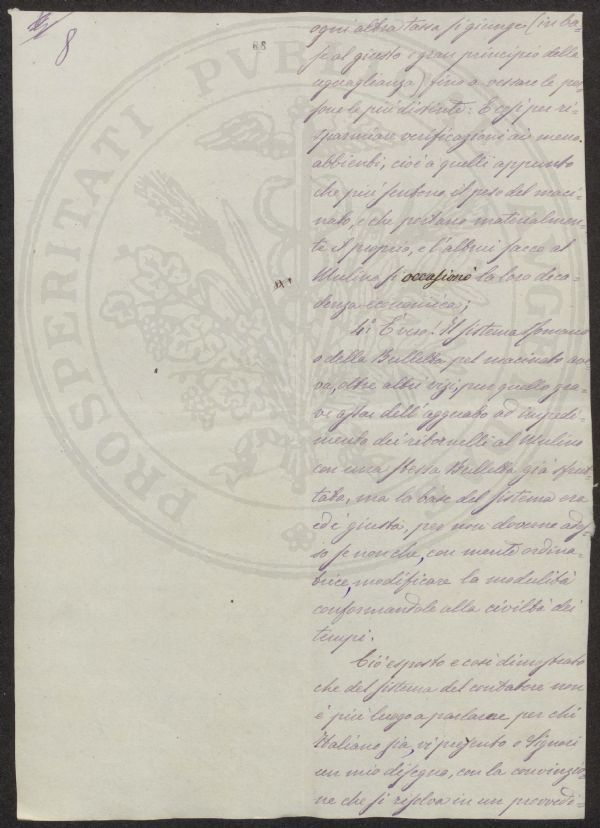 8
88
ogni altra tassa si giunge (in ba-
se al giusto e gran principio della
eguaglianza) fino a vessare le per-
sone le più distinte: E così per ri-
sparmiare verificazioni ai meno
abbienti, cioè a quelli appunto
che più sentono il peso del maci-
nato, e che portano materialmen-
te il proprio, e l'altrui sacco al
Mulino si occasionò la loro deca-
denza economica;
4° È vero! Il sistema Romano
o della Bulletta pel macinato ave-
va, oltre altri vizi, pur quello gra-
ve assai dell'agguato ad impedi-
mento dei ritornelli al Mulino
con una stessa Bulletta già sfrut-
tata, ma la base del sistema era
ed è giusta, per non doverne ades-
so se non che, con mente ordina-
trice, modificare la modulità
conformandole alla civiltà dei
tempi.
Ciò esposto e così dimostrato
che del sistema del contatore non
è più luogo a parlarne per chi
Italiano sia, vi presento o Signori
un mio disegno, con la convinzio-
ne che si risolva in un provvedi-
PROSPERITATI PUBLICAE